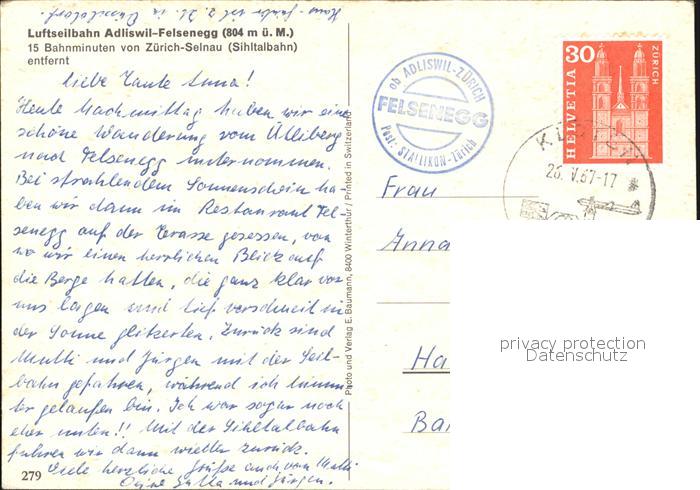 Luftseilbahn Adliswil-Felsenegg (804 m ü. M.)
15 Bahnminuten von Zürich-Selnau (Sihltalbahn)
entfernt
liebe Tante Anna!
Heute Nachmittag haben wir eine
schöne Wanderung vom Ütliberg
nach Felsenegg unternommen.
Bei strahlendem Sonnenschein ha-
ben wir dann im Restaurant Fel-
senegg auf der Terasse gesessen, von
wo wir einen herrlichen Blick auf
die Berge hatten, die ganz klar vor
uns lagen und tief verschneit in
der Sonne glitzerten. Zurück sind
Mutti und Jürgen mit der Seil-
bahn gefahren, während ich hinun-
ter gelaufen bin. Ich war sogar noch
eher unten!! Mit der Sihltalbahn
fuhren wir dann wieder zurück.
Viele herzliche Grüße auch von Mutti
Deine und Jürgen.
279
Photo und Verlag E. Baumann, 8400 Winterthur / Printed in Switzerland
ob ADLISWIL-ZÜRICH
FELSENEGG
Post: STALLIKON-Zürich
30
HELVETIA
ZÜRICH
26. V. 67-17
Frau
Anna
Ha
Ba
privacy protection
Datenschutz